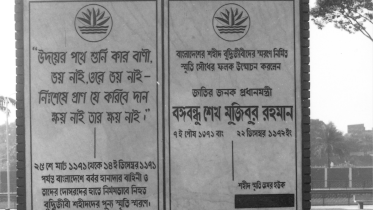 “উদয়ের পথে শুনি কার বাণী,
ভয় নাই,ওরে ভয় নাই-
নিঃশেষে প্রাণ যে করিবে দান
ক্ষয় নাই তার ক্ষয় নাই।”
২৫ শে মার্চ ১৯৭১ থেকে ১৪ ই ডিসেম্বর ১৯৭১
পর্যন্ত বাংলাদেশে বর্বর হানাদার বাহিনী ও
তাদের দোসরদের হাতে নির্মমভাবে নিহত
বুদ্ধিজীবী শহীদদের পূন্য স্মৃতি স্মরণে।
বাংলাদেশের শহীদ বুদ্ধিজীবীদের স্মরণে নির্মিত
স্মৃতি সৌধের ফলক উন্মোচন করলেন
জাতির জনক প্রধানমন্ত্রী
বঙ্গবন্ধু শেখ মুজিবুর রহমান
৭ ই পৌষ ১৩৭৯ বাং ২২ ডিসেম্বর ১৯৭২ইং
শহীদ স্মৃতি অমর হউক